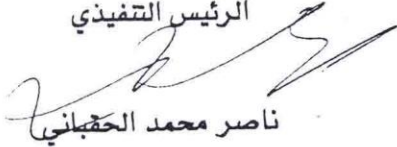 الرئيس التنفيذي
ناصر محمد الحقباني